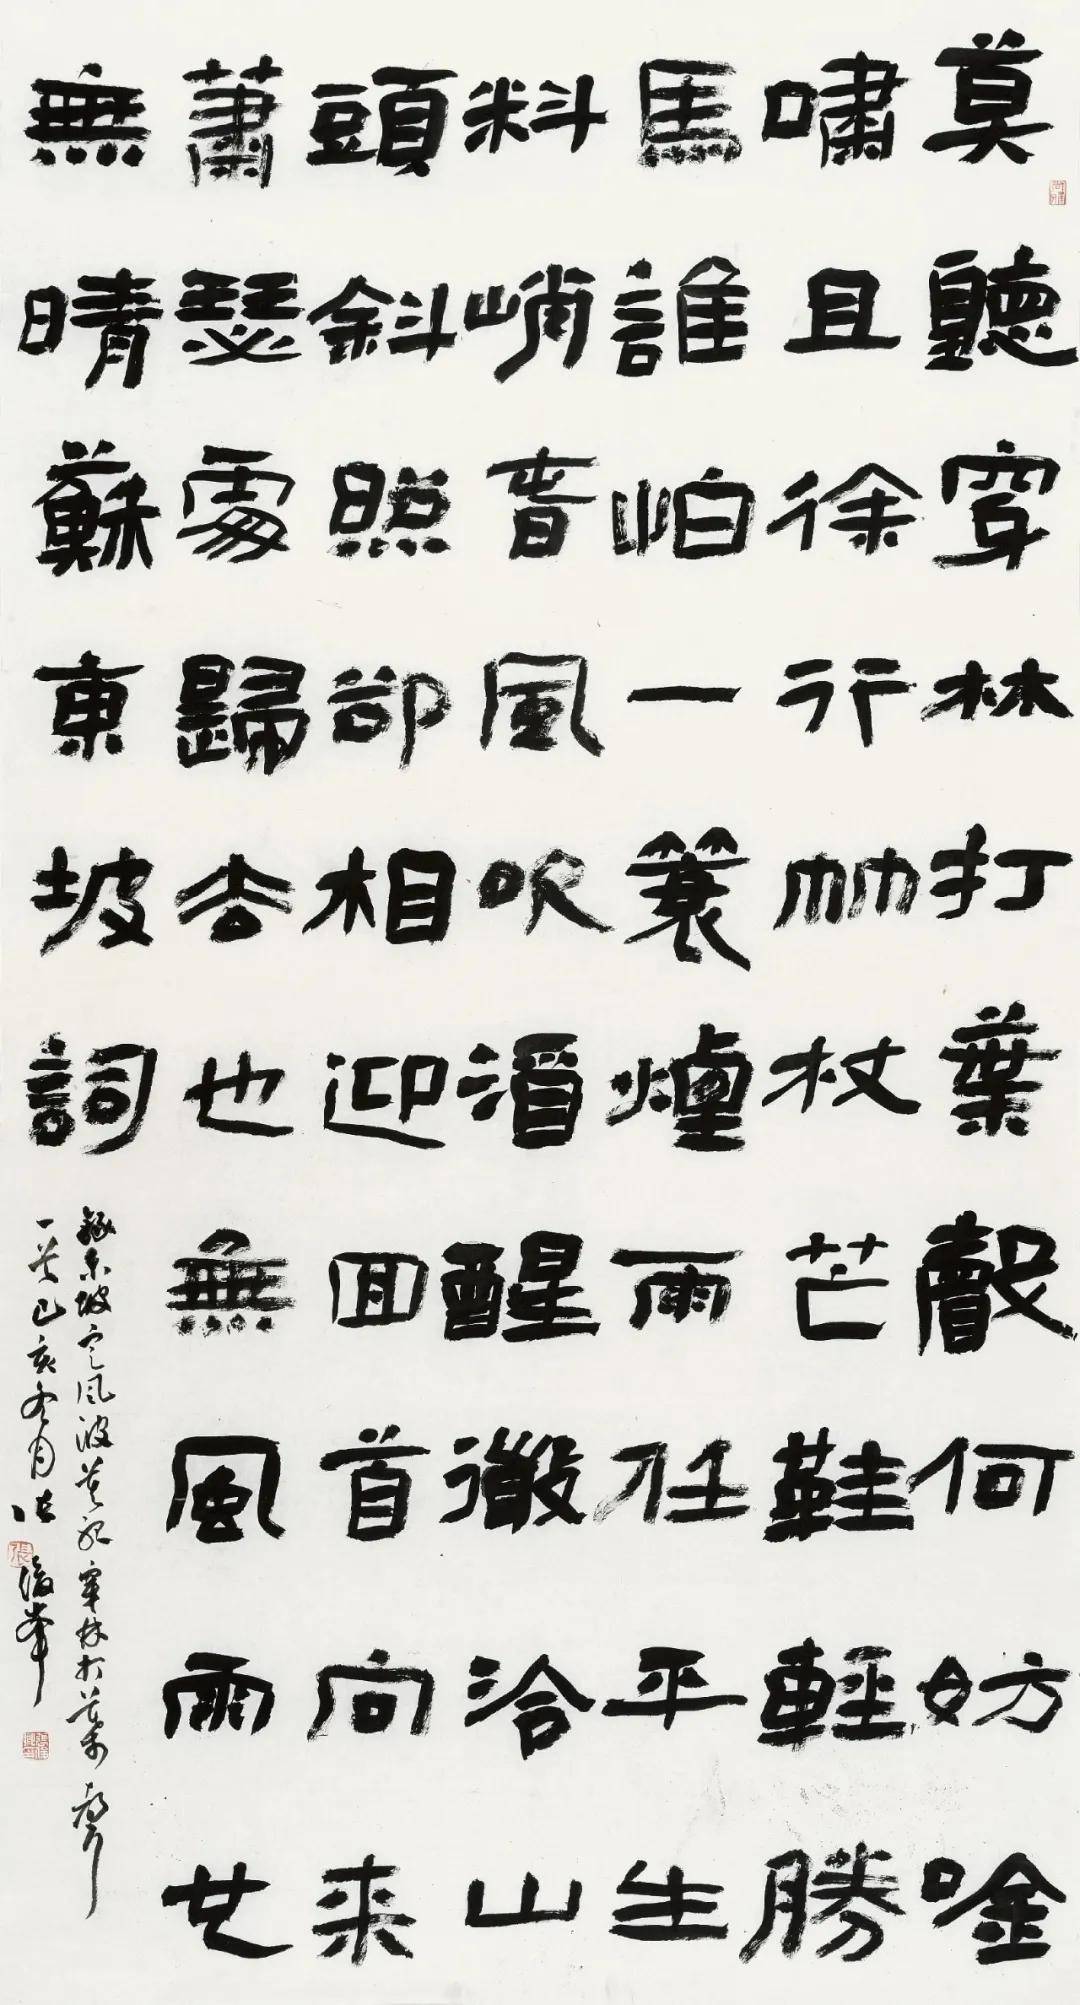 莫聽穿林打葉聲何妨唫
嘯且徐行竹杖芒鞋輕勝
馬誰怕一簑煙雨任平生
料峭春風吹酒醒微冷山
頭斜照卻相迎回首向来
蕭瑟處歸去也無風雨也
無晴蘇東坡詞
錄東坡定風波莫聽穿林打葉聲
一首己亥冬月張俊峯